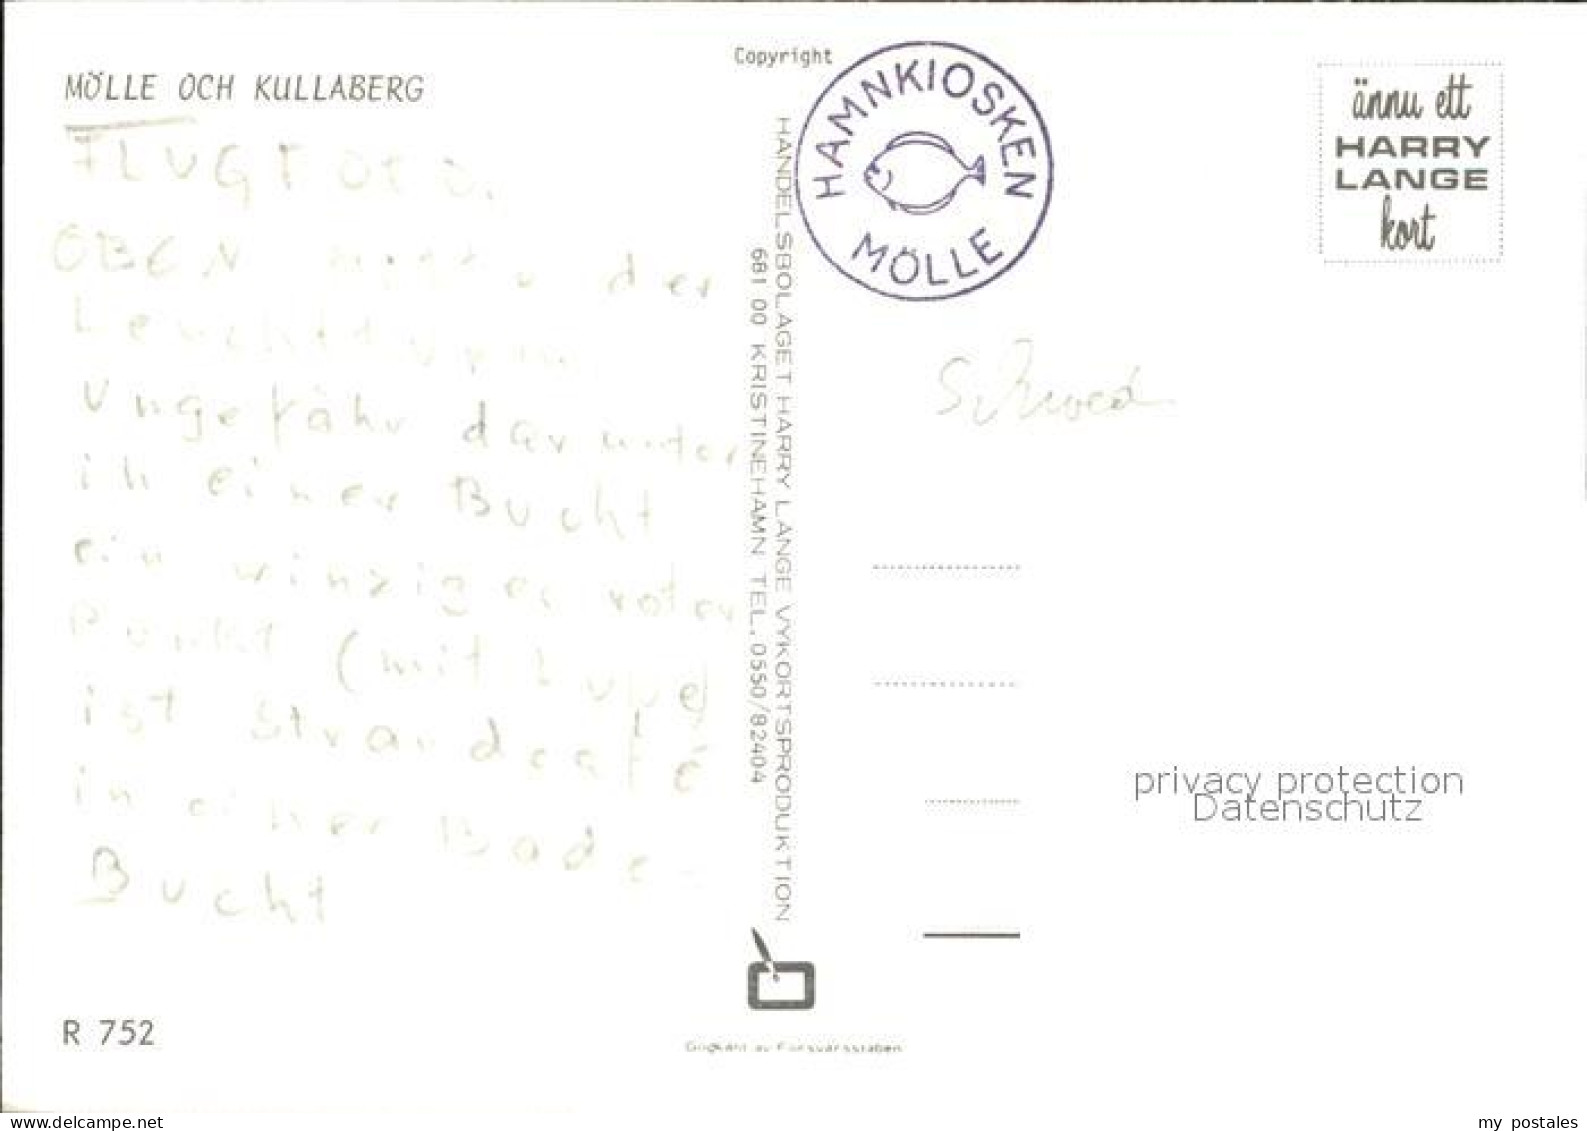 MÖLLE OCH KULLABERG
FLUGFOTO.
OBEN der
Leuchtturm
Ungefähr darunter
in einer Bucht
ein winziger roter
Punkt (mit Lupe)
ist Strandcafé
in einer Bade-
Bucht
R 752
Copyright
HANDELSBOLAGET HARRY LANGE VYKORTSPRODUKTION
681 00 KRISTINEHAMN TEL. 0550/82404
Godkänt av Försvarsstaben
HAMNKIOSKEN
MÖLLE
ännu ett
HARRY
LANGE
kort
Schwed
privacy protection
Datenschutz
www.delcampe.net
my postales